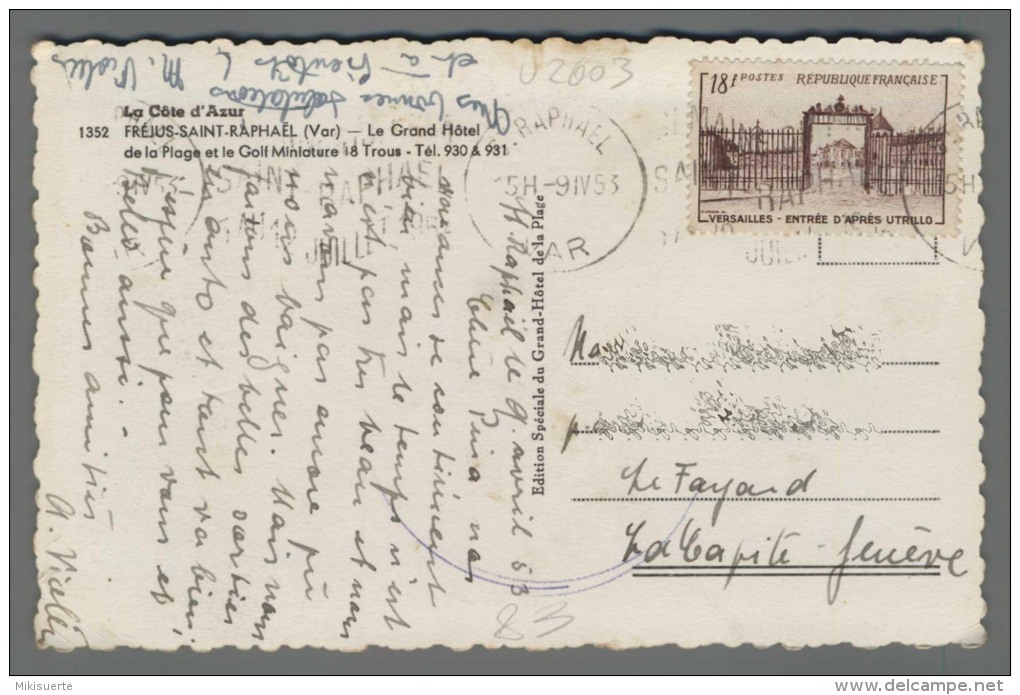 La Côte d'Azur
1352 FRÉJUS-SAINT-RAPHAËL (Var) — Le Grand Hôtel
de la Plage et le Golf Miniature 18 Trous - Tél. 930 & 931
St. Raphaël le 9. avril 53
Chère Pina nos
vacances se continuent
bien, mais le temps n'est
n'est pas très beau et nous
n'avons pas encore pu
nous baigner. Mais nous
faisons des belles sorties
en auto et tout va bien.
J'espère que pour vous et
Bello aussi.-
Bonnes amitiés
Mes bonnes salutations
et à bientôt
M.
Edition Spéciale du Grand-Hôtel de la Plage
02603
18f POSTES RÉPUBLIQUE FRANÇAISE
VERSAILLES - ENTRÉE D'APRÈS UTRILLO
RAPHAËL
15H - 9 IV 53
VAR
JUILL
Le Fayard
La Capite - Genève
83
Mikisuerte
delcampe.net